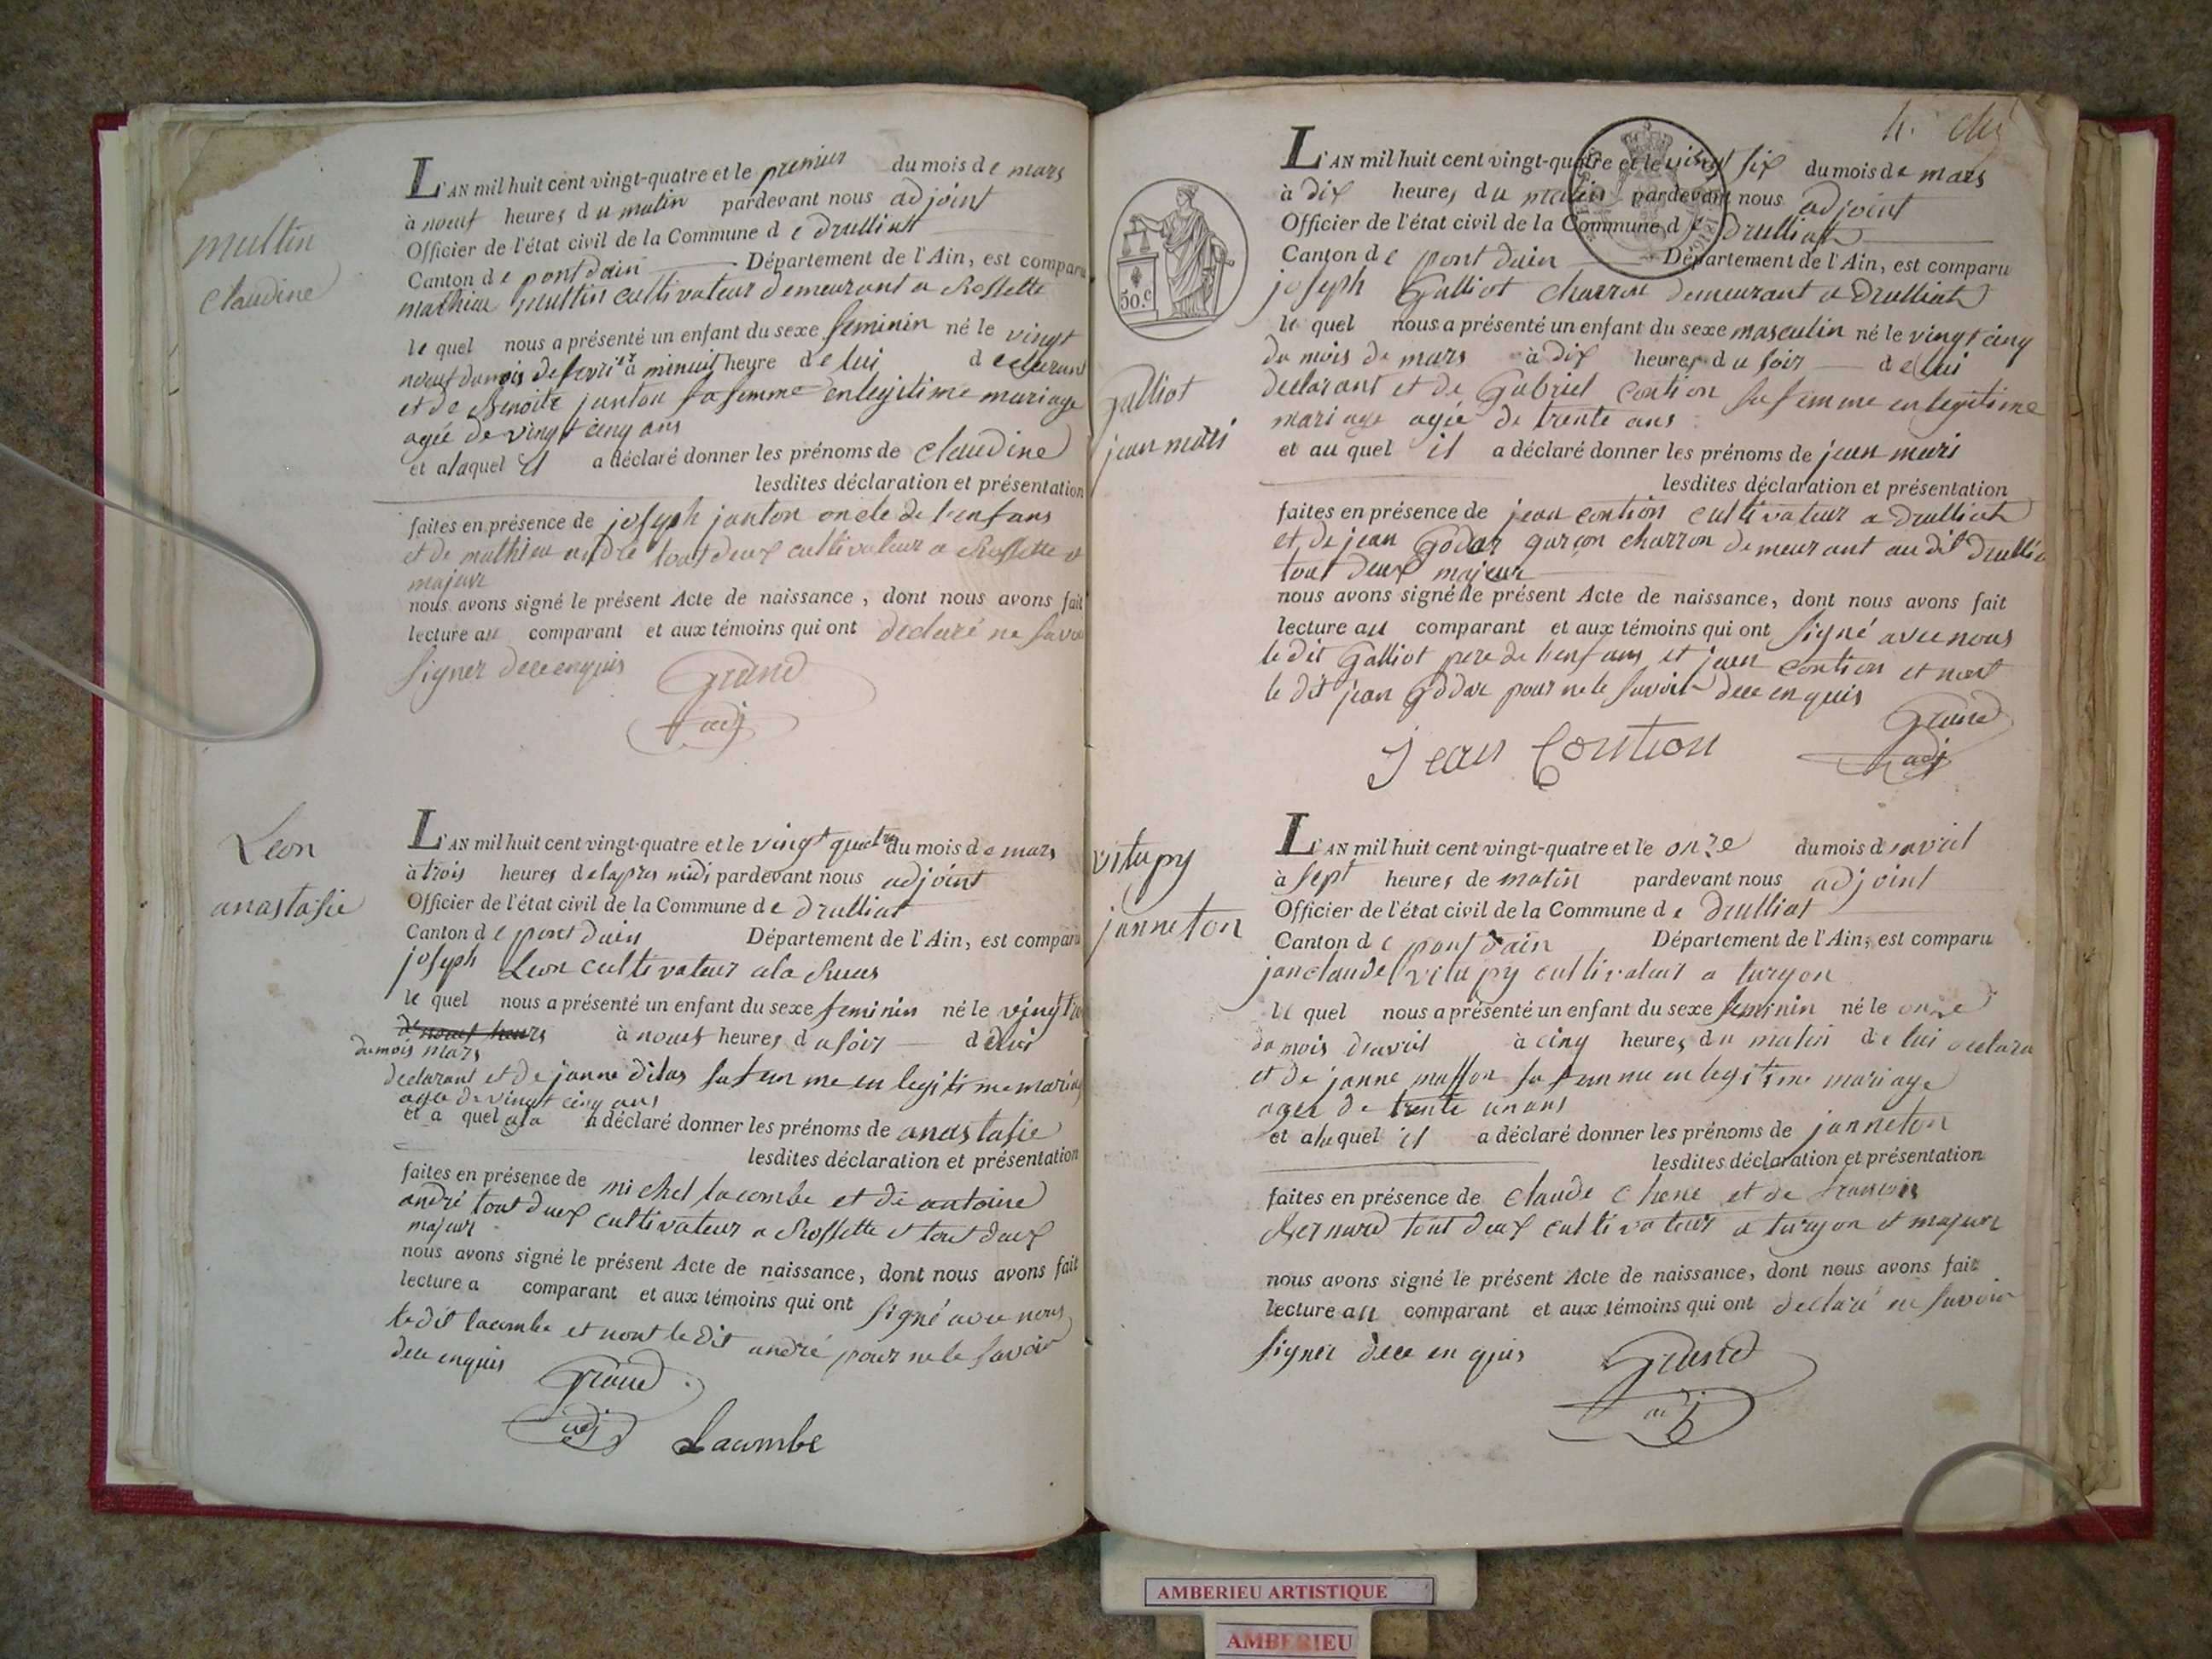 multin
claudine
L'AN mil huit cent vingt-quatre et le premier du mois de mars
à nœuf heures du matin pardevant nous adjoint
Officier de l'état civil de la Commune de Drulliat
Canton de pont dain Département de l'Ain, est comparu
mathieu multin cultivateur demeurant a Rossette
le quel nous a présenté un enfant du sexe feminin né le vingt
nœuf du mois de fevrier à minuit heure de lui declarant
et de Benoite janton sa femme en legitime mariage
agée de vingt cinq ans
et alaquel il a déclaré donner les prénoms de claudine
lesdites déclaration et présentation
faites en présence de joseph janton oncle de l'enfans
et de mathieu andré tout deux cultivateur a Rossette et
majeur
nous avons signé le présent Acte de naissance, dont nous avons fait
lecture au comparant et aux témoins qui ont declaré ne savoir
signer dece enquis Grand
adj
Leon
anastasie
L'AN mil huit cent vingt-quatre et le vingt quatre du mois de mars
à trois heures delapres midi pardevant nous adjoint
Officier de l'état civil de la Commune de Drulliat
Canton de pont dain Département de l'Ain, est comparu
joseph Leon cultivateur ala Ruas
le quel nous a présenté un enfant du sexe feminin né le vingt
à nœuf heures du soir de lui
du mois mars
declarant et de janne dilas sa femme en legitime mariage
agée de vingt cinq ans
et a quel a déclaré donner les prénoms de anastasie
lesdites déclaration et présentation
faites en présence de michel lacombe et de antoine
andré tout deux cultivateur a Rossette et tout deux
majeur
nous avons signé le présent Acte de naissance, dont nous avons fait
lecture a comparant et aux témoins qui ont signé avec nous
le dit lacombe et nont le dit andré pour ne le savoir
dece enquis Grand
adj Lacombe
50.c
galliot
jean mari
L'AN mil huit cent vingt-quatre et le vingt six du mois de mars
à dix heures du matin pardevant nous adjoint
Officier de l'état civil de la Commune de Drulliat
Canton de pont dain Département de l'Ain, est comparu
joseph Galliot charron demeurant a Drulliat
le quel nous a présenté un enfant du sexe masculin né le vingt cinq
du mois de mars à dix heures du soir de lui
declarant et de Gabriel contion sa femme en legitime
mariage agée de trente ans
et au quel il a déclaré donner les prénoms de jean mari
lesdites déclaration et présentation
faites en présence de jean contion cultivateur a drulliat
et de jean Godar garçon charron demeurant au dit drullia
tout deux majeur
nous avons signé le présent Acte de naissance, dont nous avons fait
lecture au comparant et aux témoins qui ont signé avec nous
le dit Galliot pere de lenfans et jean contion et nont
le dit jean Godar pour ne le savoir dece enquis
Grand
Jean Contion adj
vitupy
janneton
L'AN mil huit cent vingt-quatre et le onze du mois d'avril
à sept heures de matin pardevant nous adjoint
Officier de l'état civil de la Commune de Drulliat
Canton de pont d'ain Département de l'Ain, est comparu
jan claude vitupy cultivateur a turgon
le quel nous a présenté un enfant du sexe feminin né le onze
du mois d'avril à cinq heures du matin de lui declara
et de janne masson sa femme en legitime mariage
agée de trente un ans
et alaquel il a déclaré donner les prénoms de janneton
lesdites déclaration et présentation
faites en présence de claude chene et de francois
Bernard tout deux cultivateur a turgon et majeur
nous avons signé le présent Acte de naissance, dont nous avons fait
lecture au comparant et aux témoins qui ont declaré ne savoir
signer dece en quis Grand
adj
AMBERIEU ARTISTIQUE
AMBERIEU